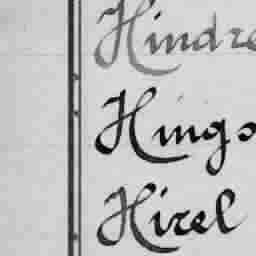 Hindre
Hingo
Hirel